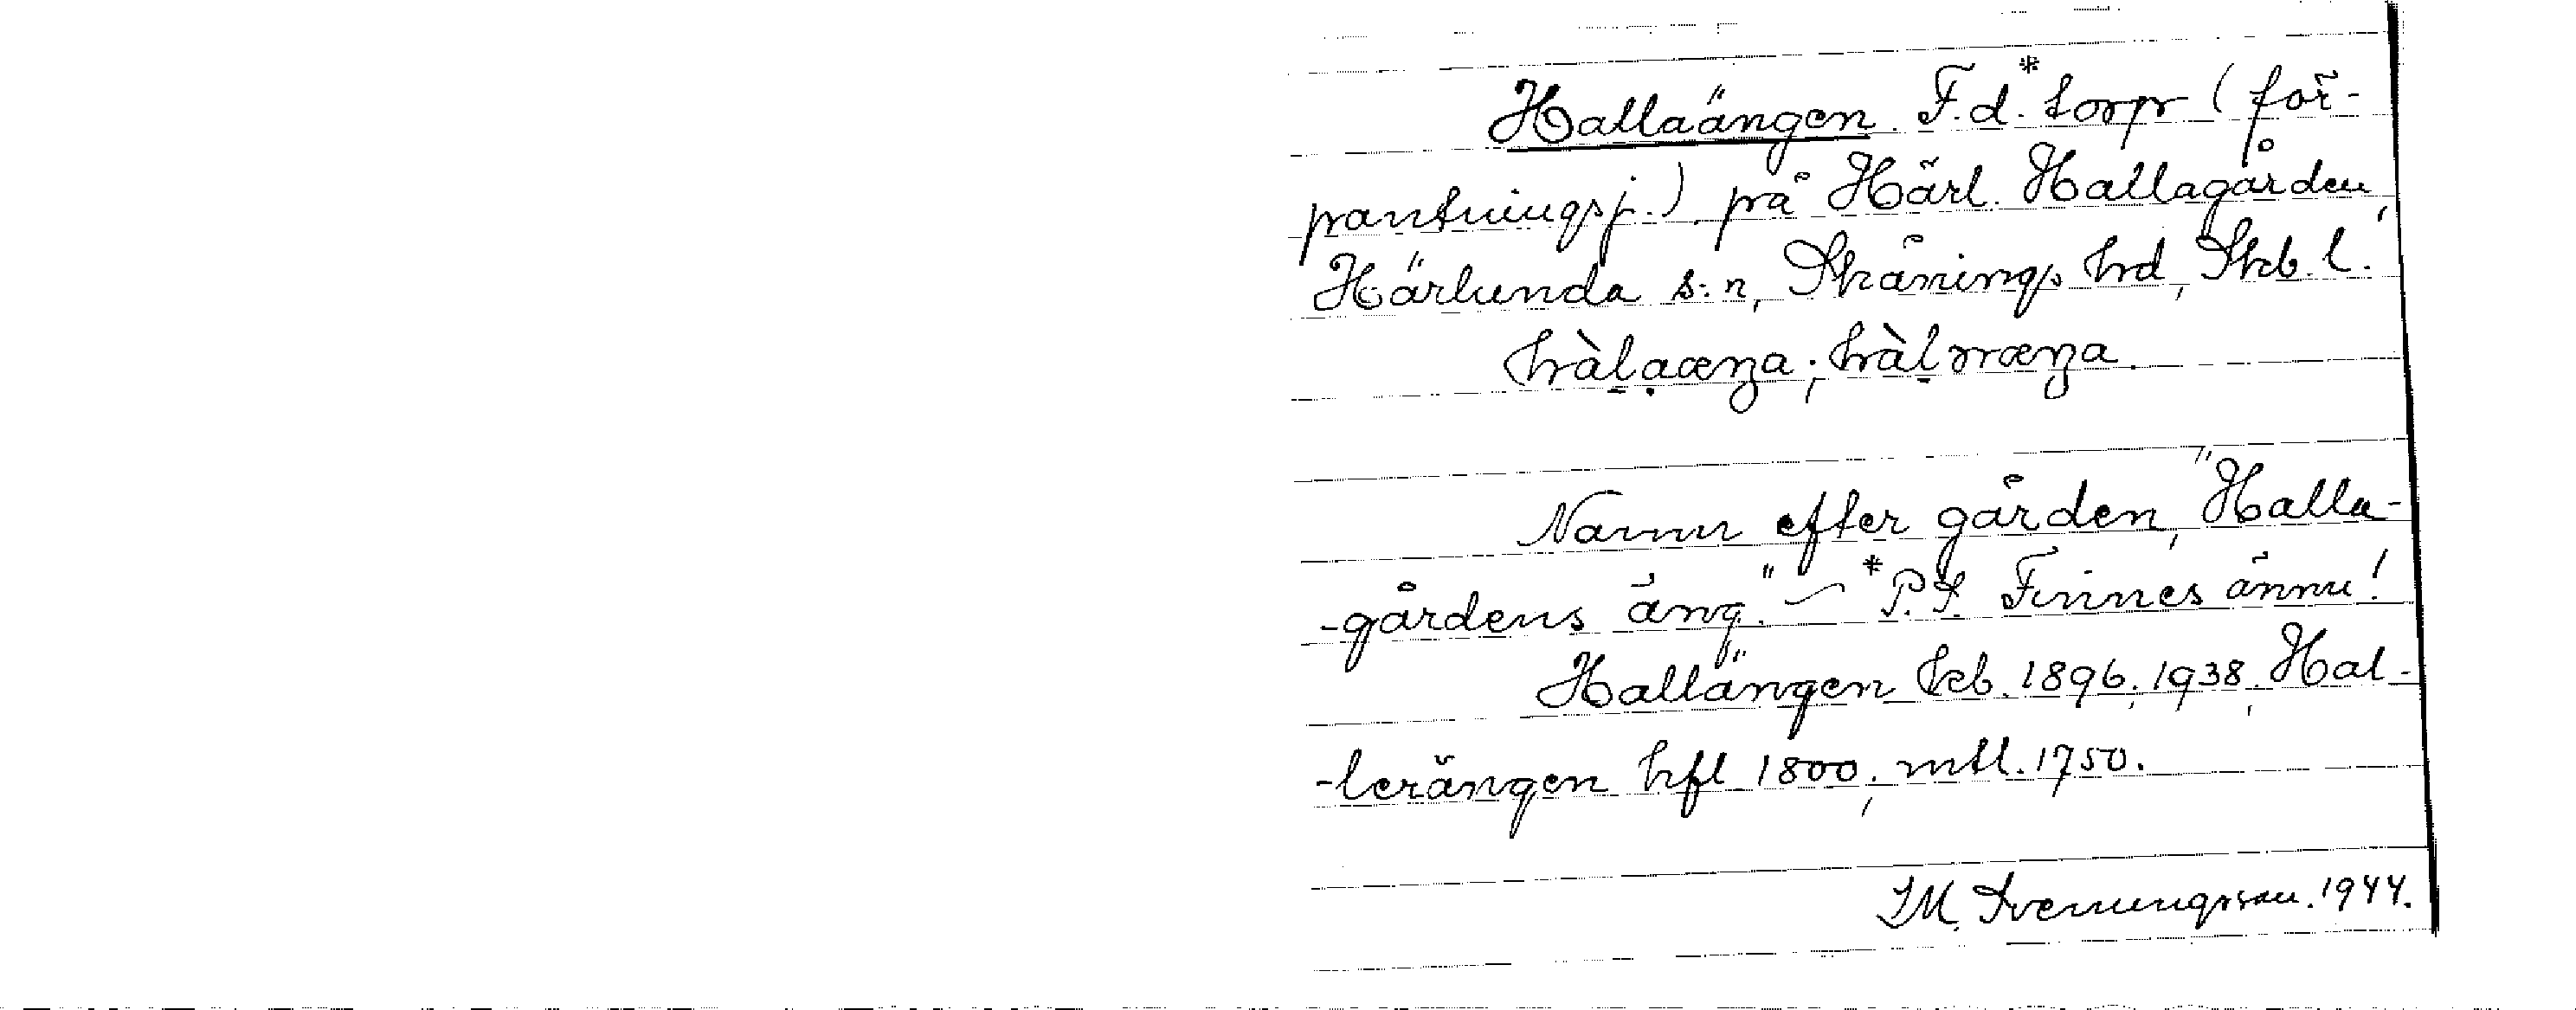 Hallaängen. F.d.* torp (för-
pantningsj.) på Härl. Hallagården,
Härlunda s:n, Skånings hd, Skb. l.
hàl̠ạæŋa; hàl̠ɤæŋa.
Namn efter gården, "Halla-
-gårdens äng." ~ * P.S. Finnes ännu!
Hallängen kb. 1896, 1938, Hal-
-lerängen hfl 1800; mtl. 1750.
IM. Svenungsson. 1944.